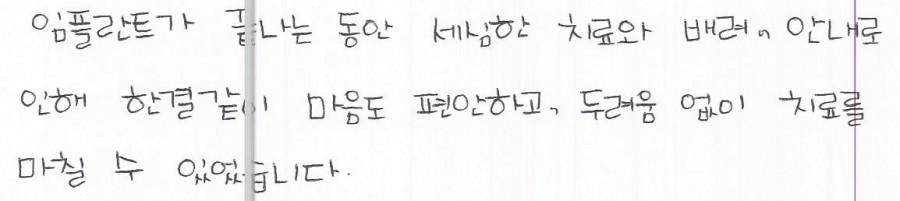 임플란트가 끝나는 동안 세심한 치료와 배려, 안내로
인해 한결같이 마음도 편안하고, 두려움 없이 치료를
마칠 수 있었습니다.